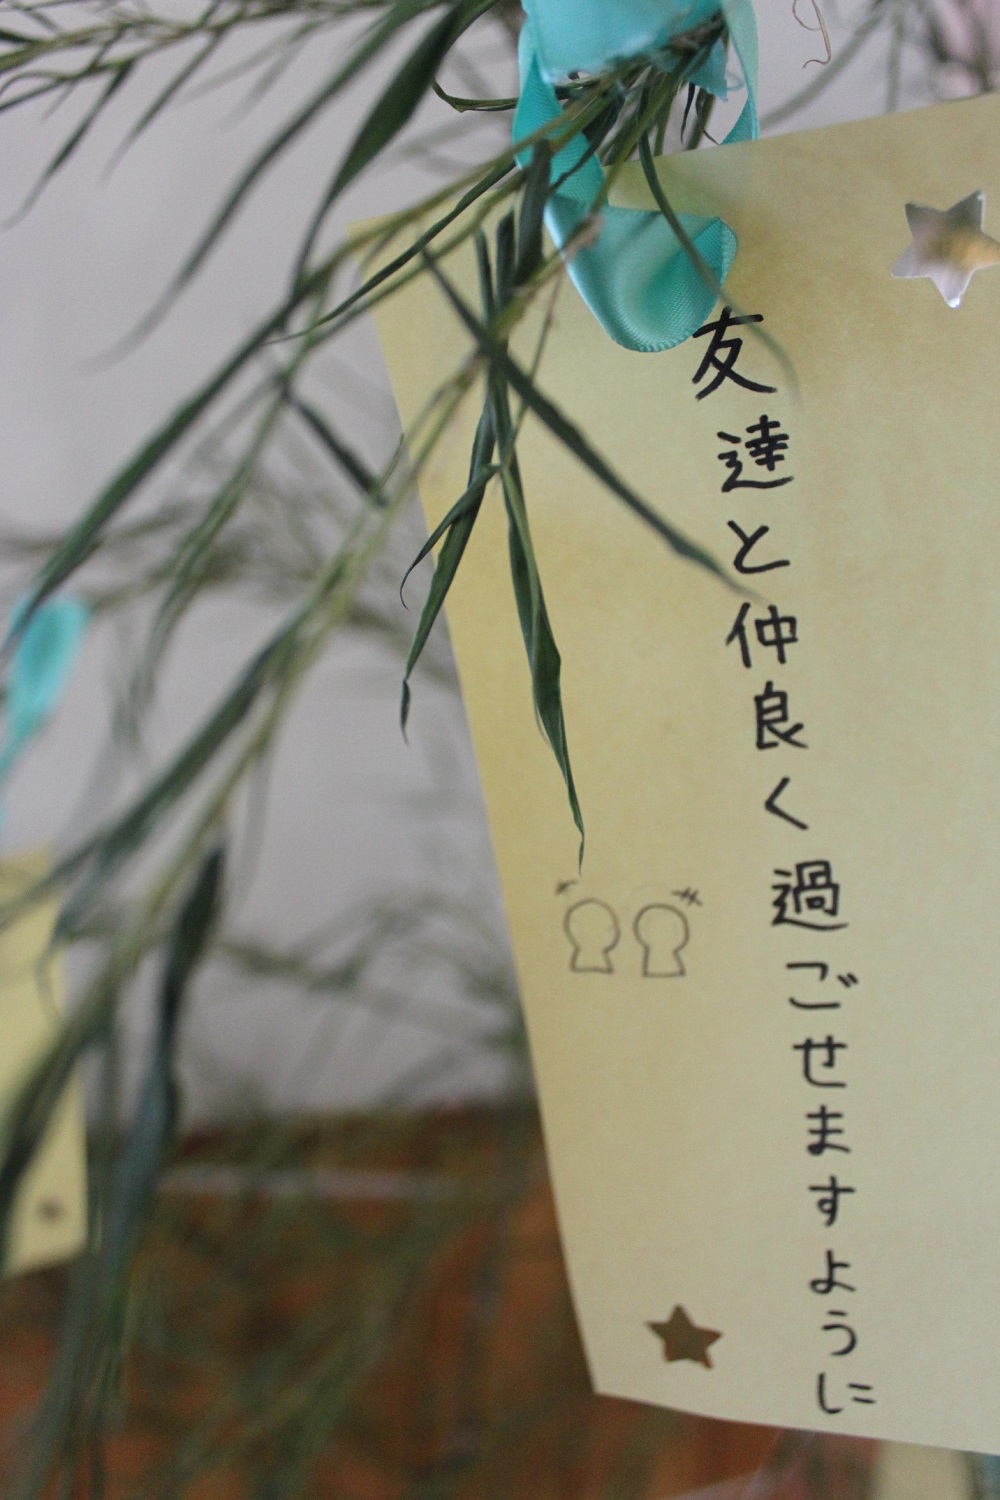 友達と仲良く過ごせますように